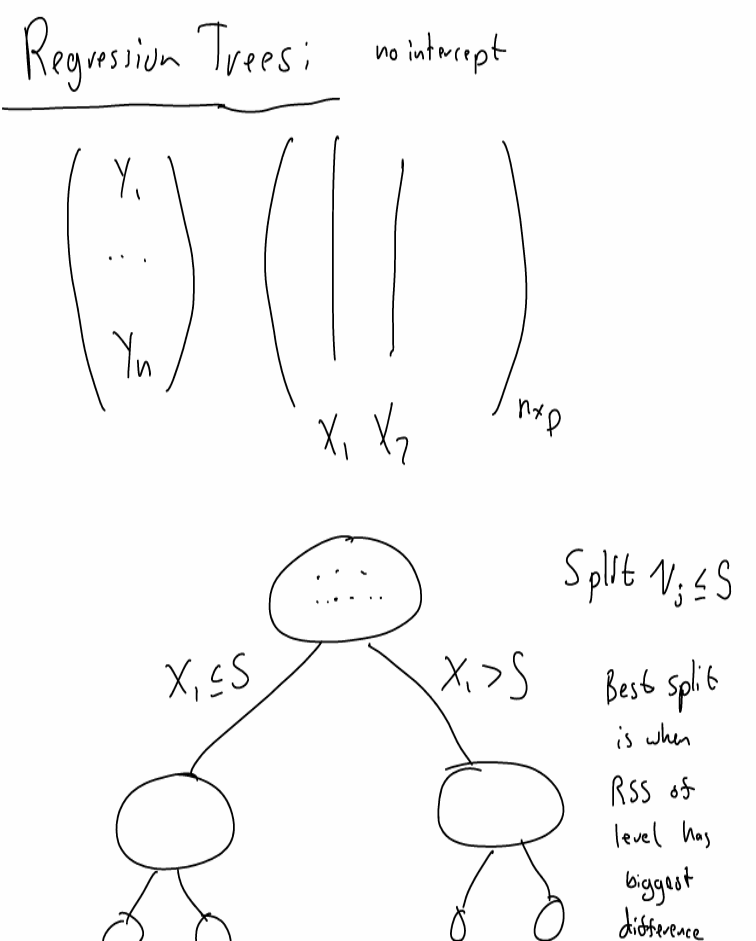 Regression Trees: no intercept
Y₁
...
Yn
X₁ X₂
n×p
Split Xj ≤ S
X₁ ≤ S
X₁ > S
Best split
is when
RSS of
level has
biggest
difference